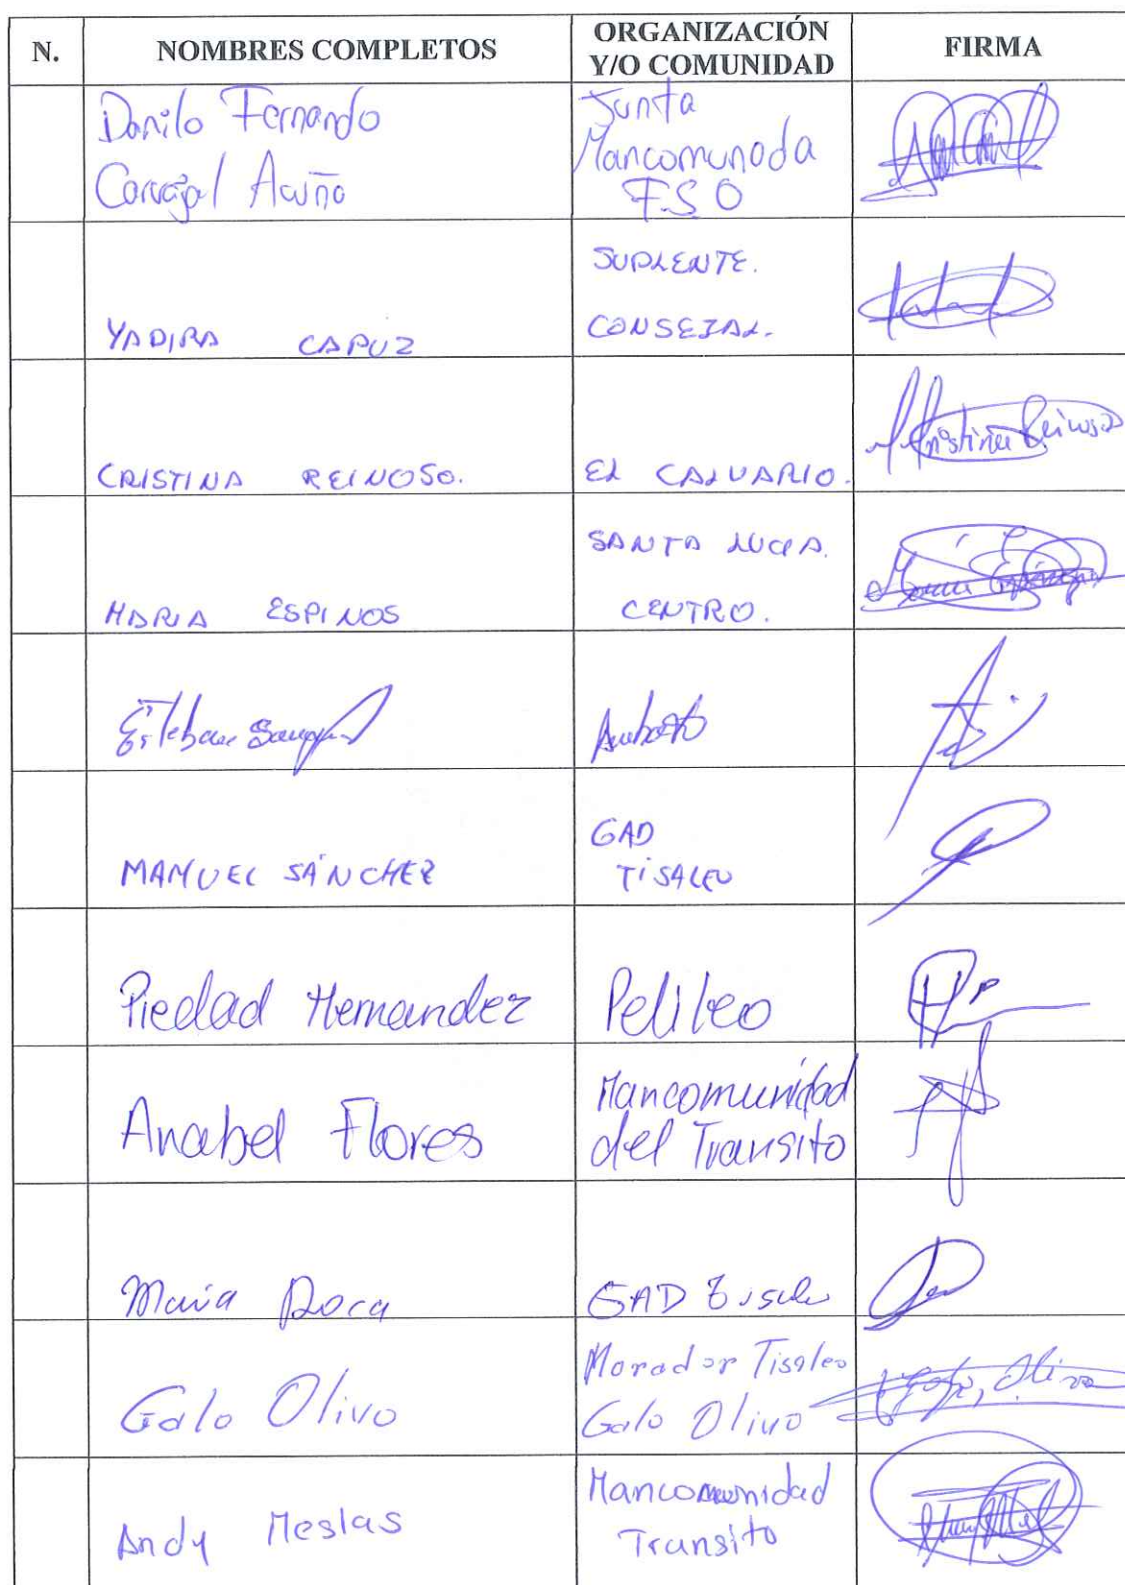 N. NOMBRES COMPLETOS ORGANIZACIÓN Y/O COMUNIDAD FIRMA
Danilo Fernando
Carvajal Acuña
Junta
Mancomunada
F.S.O
YADIRA CAPUZ
SUPLENTE.
CONSEJAL.
CRISTINA REINOSO.
EL CALVARIO.
Cristina Reinoso
MARIA ESPINOS
SANTA LUCIA.
CENTRO.
Esteban
Ambato
MANUEL SÁNCHEZ
GAD
TISALEO
Piedad Hernandez
Pelileo
Anabel Flores
Mancomunidad
del Transito
Maria Poca
GAD Tisaleo
Galo Olivo
Morador Tisaleo
Galo Olivo
Galo, Olivo
Andy Mesias
Mancomunidad
Transito